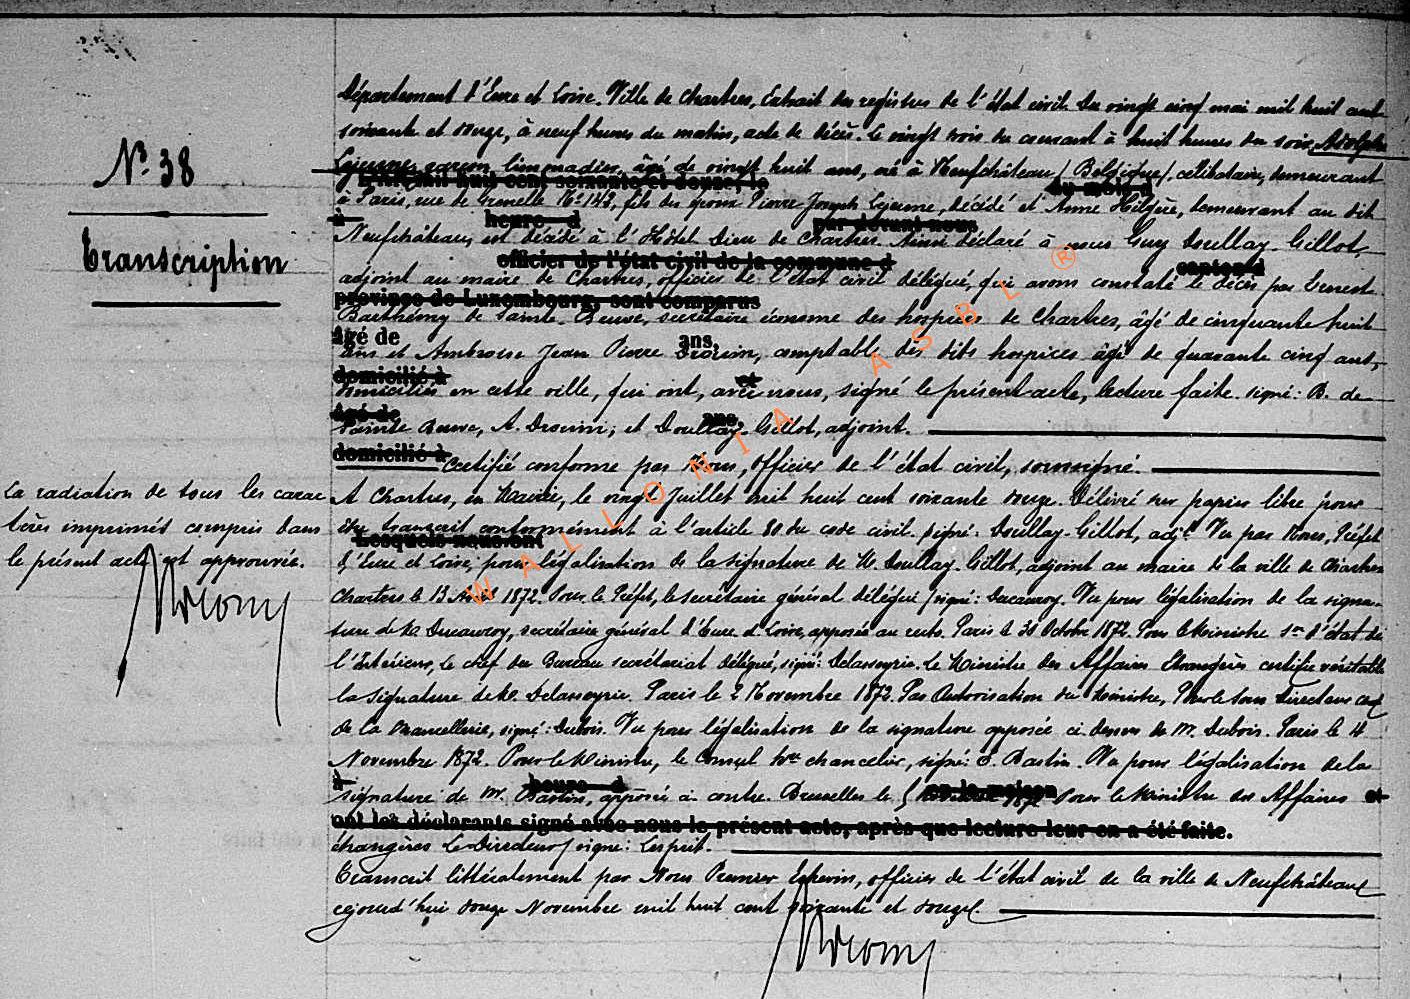 N° 38
Transcription
La radiation de tous les carac
tères imprimés compris dans
le présent acte est approuvée.
Département d'Eure et Loire. Ville de Chartres, Extrait des registres de l'état civil. Du vingt cinq mai mil huit cent
soixante et douze, à neuf heures du matin, acte de décès. Le vingt trois du courant à huit heures du soir, Adolphe
Lejeune, garçon limonadier, âgé de vingt huit ans, né à Neufchâteau (Belgique), célibataire, demeurant
L'an mil huit cent soixante et douze, le
du mois d
à Paris, rue de Grenelle N° 142, fils des époux Pierre Joseph Lejeune, décédé et Anne Hilgère, demeurant au dit
à
heure d
par devant nous
Neufchâteau, est décédé à l'Hôtel Dieu de Chartres. Ainsi déclaré à nous Guy Doullay-Gillot,
officier de l'état civil de la commune d
canton d
adjoint au maire de Chartres, officier de l'état civil délégué, qui avons constaté le décès par Ernest
province de Luxembourg, sont comparus
Barthémy de Sainte-Beuve, secrétaire économe des hospices de Chartres, âgé de cinquante huit
âgé de
ans,
ans et Ambroise Jean Pierre Drouin, comptable des dits hospices âgé de quarante cinq ans,
domicilié à
et
domiciliés en cette ville, qui ont, avec nous, signé le présent acte, lecture faite. signé: B. de
âgé de
ans
Sainte Beuve, A. Drouin; et Doullay-Gillot, adjoint.
domicilié à
Certifié conforme par Nous, Officier de l'état civil, soussigné.
A Chartres, en Mairie, le vingt Juillet mil huit cent soixante douze. Délivré sur papier libre pour
être transcrit conformément à l'article 80 du code civil. signé: Doullay-Gillot, adjt. Vu par Nous, Préfet
Lesquels nous ont
d'Eure et Loire, pour légalisation de la signature de M. Doullay-Gillot, adjoint au maire de la ville de Chartres
Chartres le 13 1872. Pour le Préfet, le secrétaire général délégué, signé: Ducauroy. Vu pour légalisation de la signa-
ture de M. Ducauroy, secrétaire général d'Eure et Loire, apposée au recto. Paris le 31 Octobre 1872. Pour le Ministre Sre d'état de
l'Intérieur, Le chef du Bureau secrétariat délégué, signé: Delasseyrie. Le Ministre des Affaires Etrangères certifie véritable
la signature de M. Delasseyrie. Paris le 2 Novembre 1872. Par Autorisation du Ministre, Pour le sous Directeur chef
de la Chancellerie, signé: Dubois. Vu pour légalisation de la signature apposée ci dessus de M. Dubois. Paris le 4
Novembre 1872. Pour le Ministre, le Consul hre chancelier, signé: J. Bastin. Vu pour légalisation de la
à
heure d
en la maison
signature de M. Bastin, apposée ci contre. Bruxelles le 5 Novembre 1872 Pour le Ministre des Affaires
et
ont les déclarants signé avec nous le présent acte, après que lecture leur en a été faite.
étrangères Le Directeur, signé: Lesprit.
Transcrit littéralement par Nous Premier Echevin, officier de l'état civil de la ville de Neufchâteau
cejourd'hui douze Novembre mil huit cent soixante et douze.
WALLONIA ASBL ®